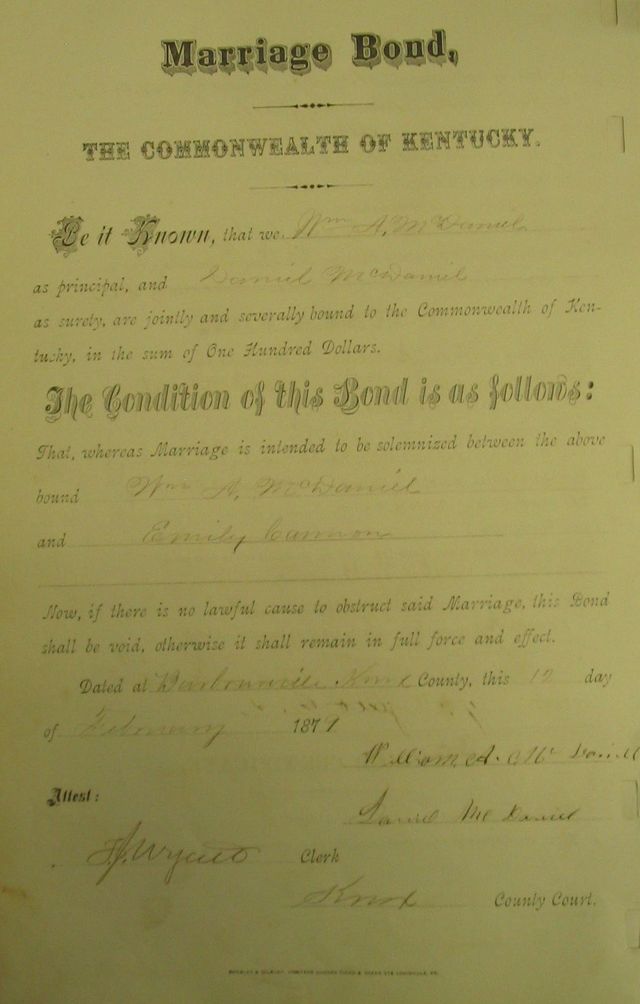 Marriage Bond,
THE COMMONWEALTH OF KENTUCKY.
Be it Known, that we Wm A. McDaniel
as principal, and Daniel McDaniel
as surety, are jointly and severally bound to the Commonwealth of Ken-
tucky, in the sum of One Hundred Dollars.
The Condition of this Bond is as follows:
That, whereas Marriage is intended to be solemnized between the above
bound Wm A. McDaniel
and Emily Cannon
Now, if there is no lawful cause to obstruct said Marriage, this Bond
shall be void, otherwise it shall remain in full force and effect.
Dated at Barbourville Knox County, this 12 day
of February 1879
William A. Mc Daniel
Attest:
Daniel Mc Daniel
Wyatt Clerk
Knox County Court.